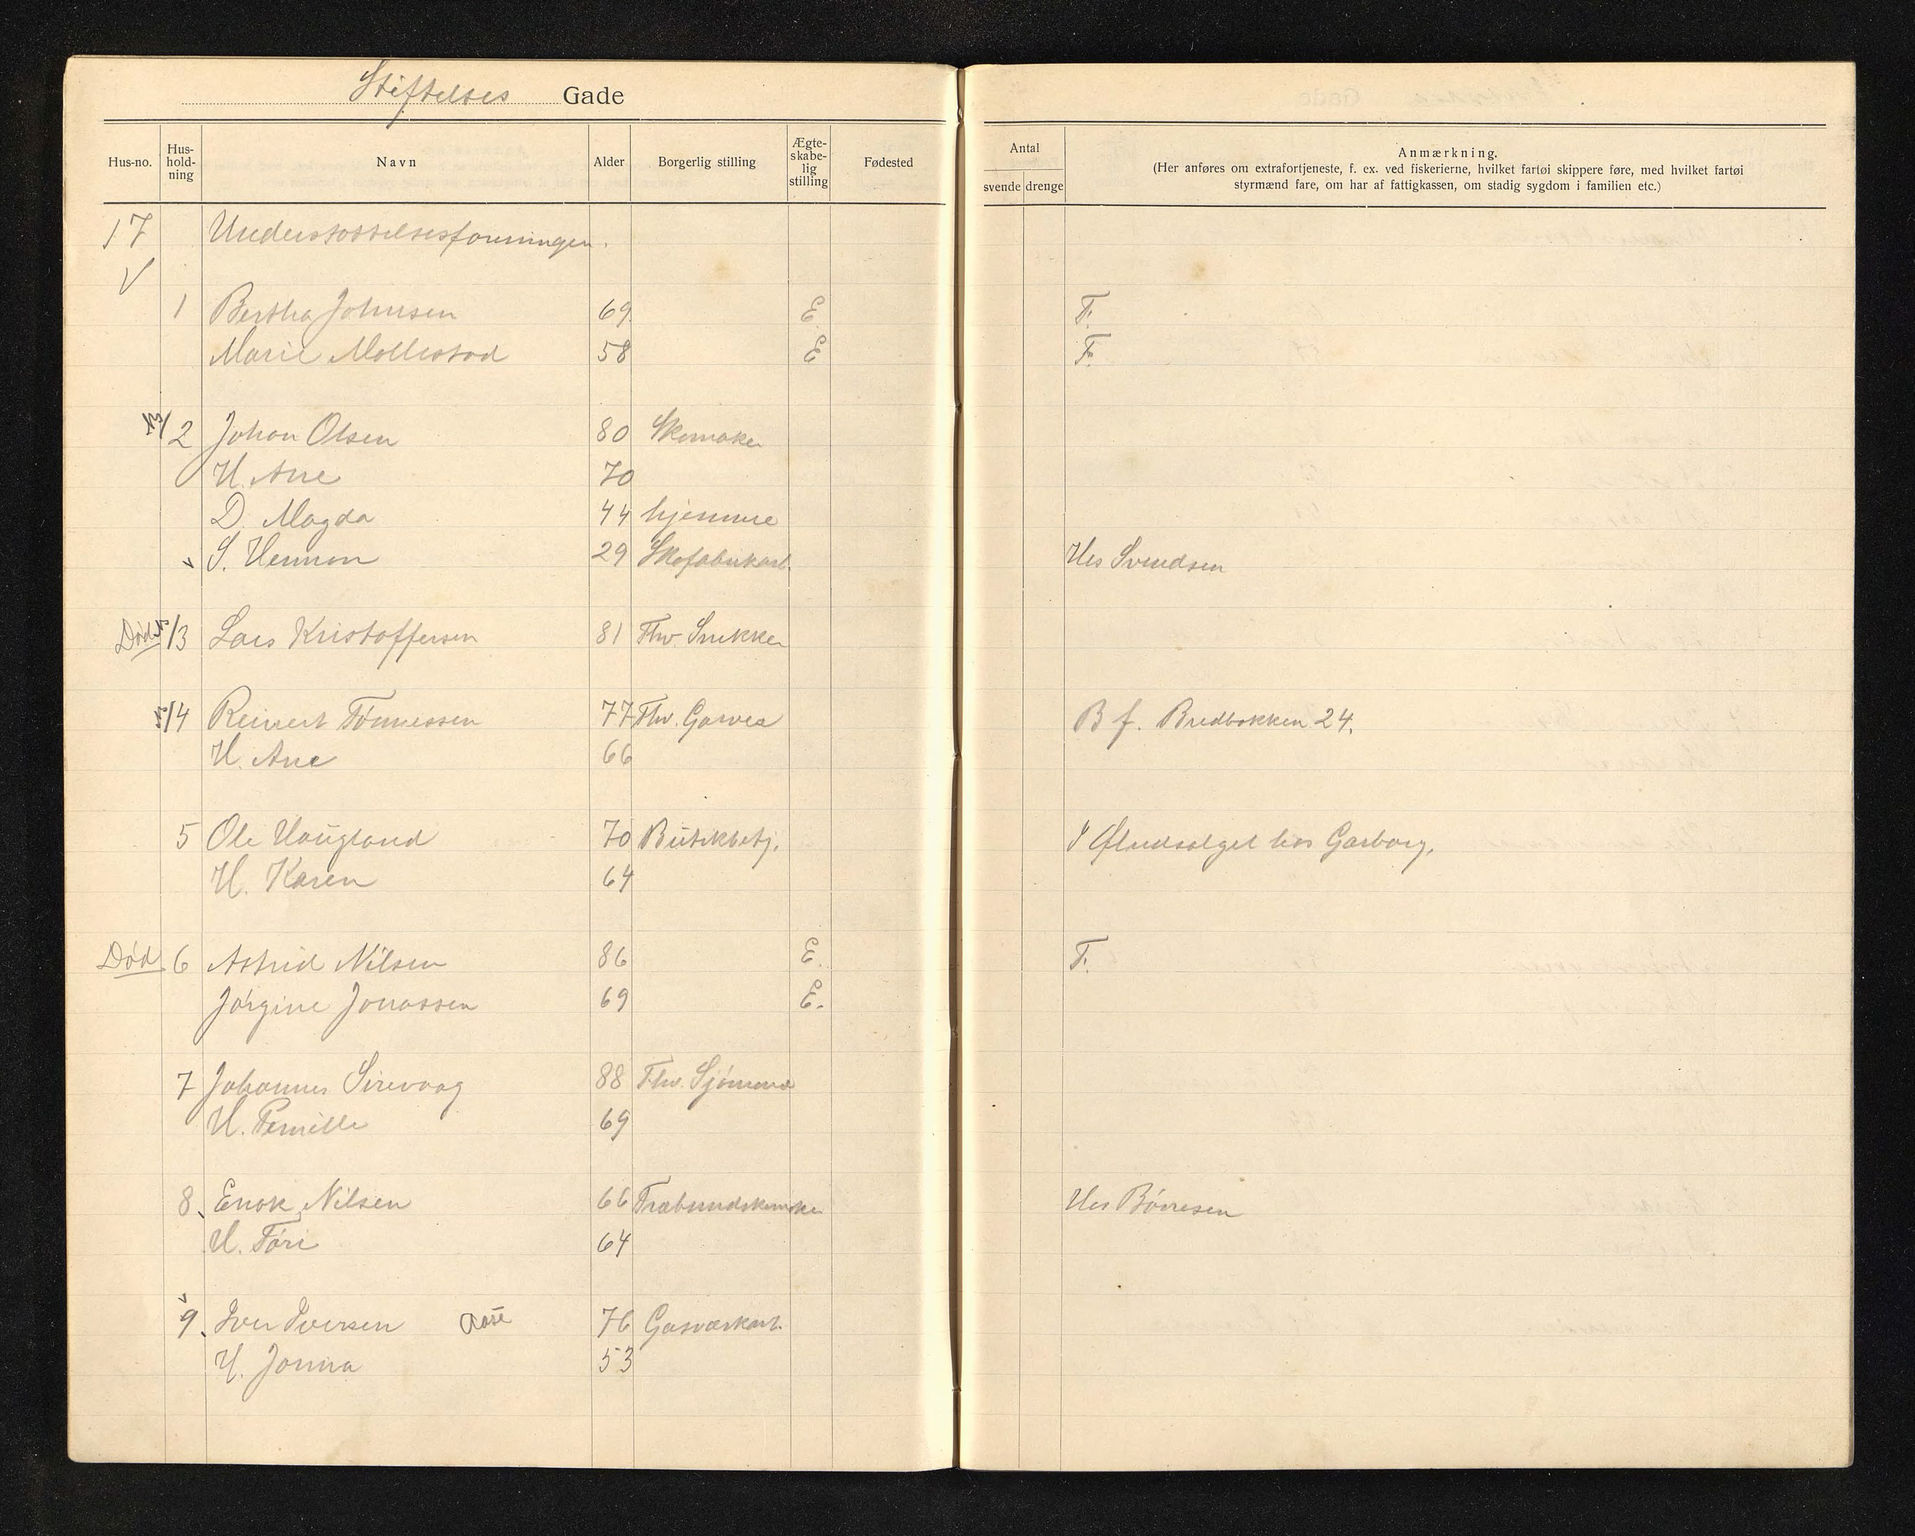 Stiftelses Gade
Hus-no. Hus-hold-ning Navn Alder Borgerlig stilling Ægte-skabe-lig stilling Fødested
Antal svende drenge
Anmærkning.
(Her anføres om extrafortjeneste, f. ex. ved fiskerierne, hvilket fartøi skippere føre, med hvilket fartøi
styrmænd fare, om har af fattigkassen, om stadig sygdom i familien etc.)
17 Understøttelsesforeningen.
1 Bertha Johnsen 69 E F.
Marie Mollestad 58 E F.
2 Johan Olsen 80 Skomaker
H. Ane 70
D. Magda 44 hjemme
S. Herman 29 Skofabrikarb. Hos Svendsen
Død 3 Lars Kristoffersen 81 Fhv. Snikker
4 Reinert Tønnessen 77 Fhv. Garver B f. Bredbakken 24.
H. Ane 66
5 Ole Haugland 70 Butikbetj. I Øludsalget hos Garborg.
H. Karen 64
Død 6 Astrid Nilsen 86 E. F.
Jørgine Jonassen 69 E.
7 Johannes Sirevaag 88 Fhv. Sjømand
H. Pernille 69
8 Enok Nilsen 66 Træbundskomaker Hos Børresen
H. Tori 64
9 Iver Iversen Aase 76 Gasværkarb.
H. Jonna 53